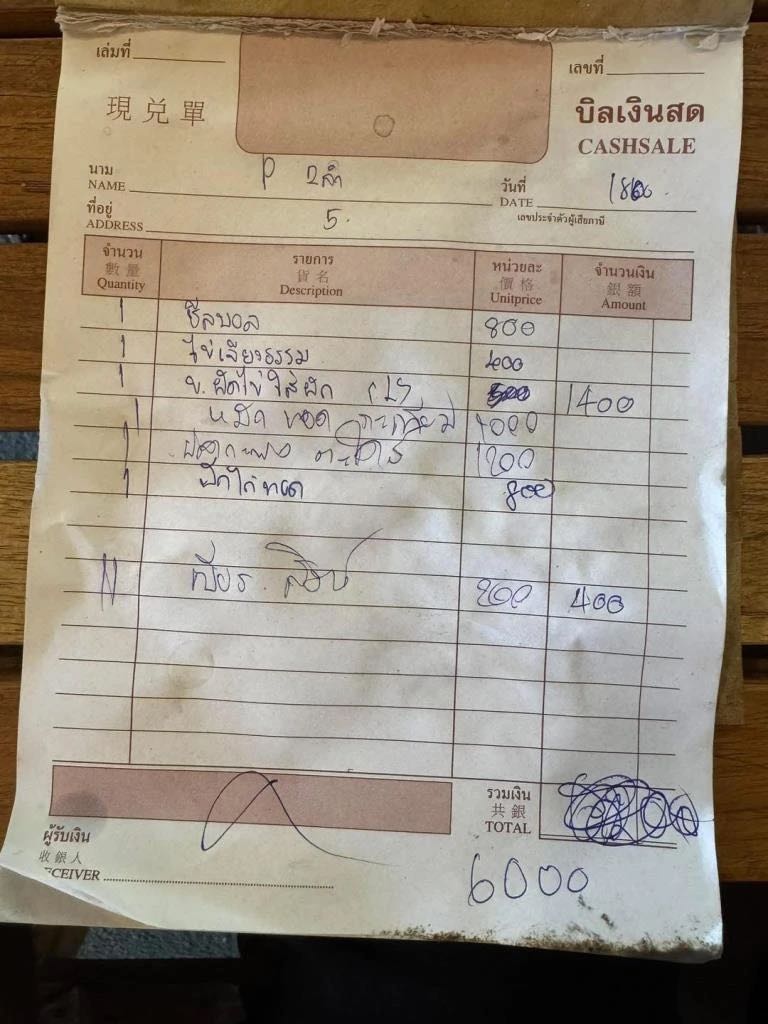 เล่มที่
เลขที่
現兌單
บิลเงินสด
CASHSALE
นาม
NAME
P 2ลำ
วันที่
DATE
ที่อยู่
ADDRESS
5.
เลขประจำตัวผู้เสียภาษี
จำนวน รายการ หน่วยละ จำนวนเงิน
數量 貨名 價格 銀額
Quantity Description Unitprice Amount
1 ซีสบอล 800
1 ไข่เจียวธรรม 400
1 ข.ผัดไข่ใส่ผัก 1400
1 หมึกทอดกระเทียม 1000
1 1200
1 ปีกไก่ทอด 800
เบียร์ สิงห์ 200 400
รวมเงิน
共銀
TOTAL
ผู้รับเงิน
收銀人
ECEIVER
6000